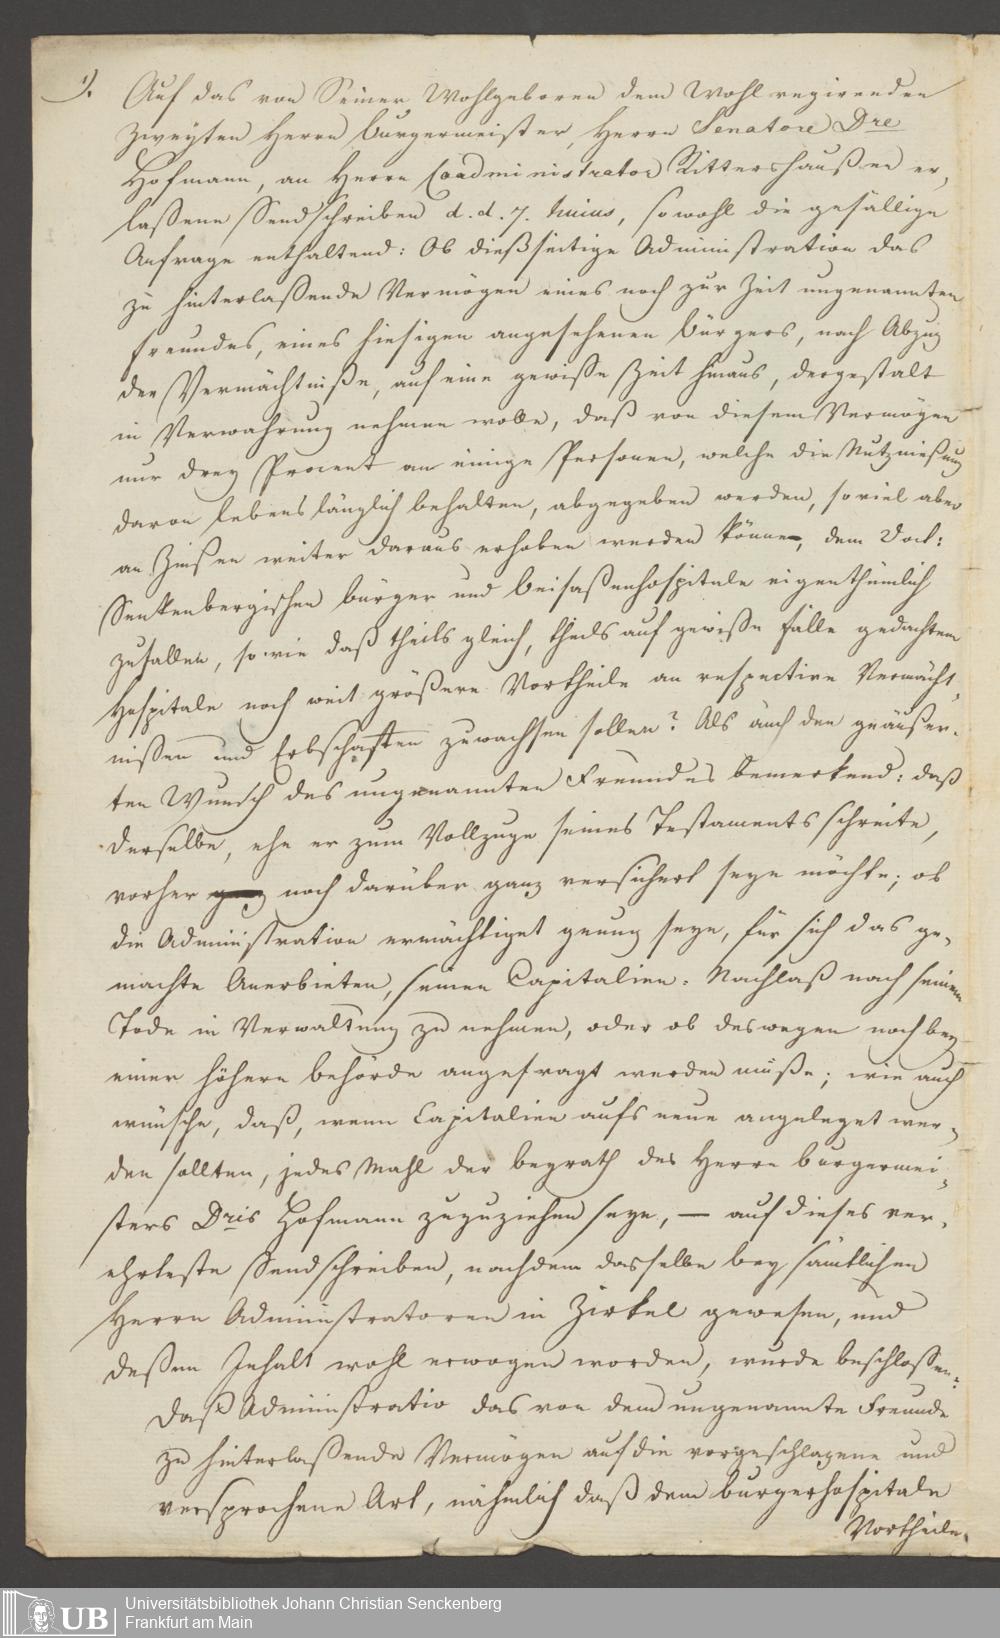 1). Auf das von Seiner Wohlgeboren dem Wohlregirenden
Zweyten Herrn Bürgermeister, Herrn Senatore Dre
Hofmann, an Herrn Coadministrator Rittershaußen er,
laßene Sendschreiben d. d. 7. huius, sowohl die gefällige
Anfrage enthaltend: Ob dießseitige Administration das
zu hinterlaßende Vermögen eines noch zur Zeit ungenannten
Freundes, eines hiesigen angesehenen Bürgers, nach Abzug
der Vermächtniße, auf eine gewiße Zeit hinaus, dergestalt
in Verwahrung nehmen wolle, daß von diesem Vermögen
nur drey Procent an einige Personen, welche die Nutznießung
davon lebenslänglich behalten, abgegeben werden, so viel aber
an Zinßen weiter daraus erhoben werden könne, dem Doct:
Senkenbergischen Bürger und Beisaßenhospitale eigenthümlich
zufallen, so wie daß theils gleich, theils auf gewiße Fälle gedachtem
Hospitale noch weit größere Vortheile an respective Vermächt,
nißen und Erbschaften zuwachsen sollen? Als auch den geäußer-
ten Wunsch des ungenannten Freundes bemerkend: daß
derselbe, ehe er zum Vollzuge seines Testaments schreite,
vorher noch darüber ganz versichert seyn möchte; ob
die Administration ermächtiget genug seye, für sich das ge-
machte Anerbieten, seinen Capitalien-Nachlaß nach seinem
Tode in Verwaltung zu nehmen, oder ob deswegen noch bey
einer höhern Behörde angefragt werden müße; wie auch
wünsche, daß, wenn Capitalien aufs neue angeleget wer-
den sollten, jedes Mahl der Beyrath des Herrn Burgermei-
sters Dris Hofmann zuzuziehen seye, — auf dieses ver-
ehrteste Sendschreiben, nachdem dasselbe bey sämtlichen
Herrn Administratoren in Zirkel gewesen, und
deßen Inhalt wohl erwogen worden, wurde beschloßen:
Daß Administratio das von dem ungenannte Freunde
zu hinterlaßende Vermögen auf die vorgeschlagene und
versprochene Art, nähmlich daß dem Burgerhospitale
Vortheile
UB Universitätsbibliothek Johann Christian Senckenberg
Frankfurt am Main